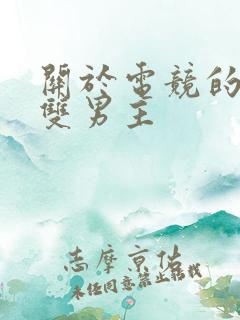 關於電競的
雙男主
志摩京佻
未经同意禁止转载